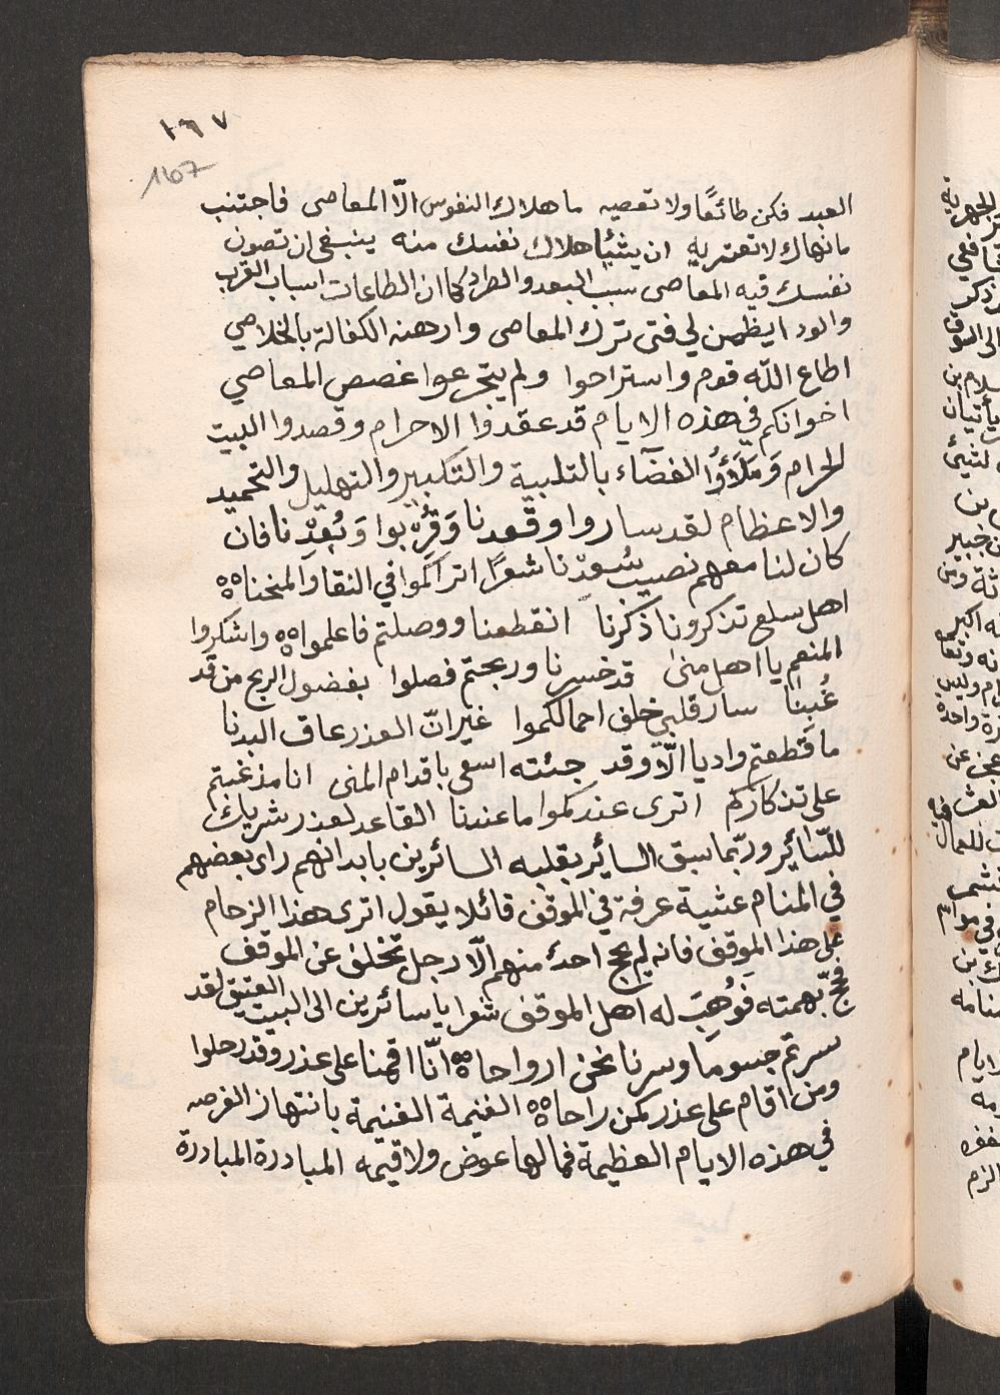 ١٦٧
167
العبد فكن طائعًا ولا تعصيه ما هلاك النفوس الّا المعاصى فاجتنب
مانهاك لا تعتريه ان يشئًا هلاك نفسك منه ينبغى ان تصون
نفسك فيه المعاصى سبب البعد والطرد كما ان الطاعات اسباب القرب
والود ايظمن لي فتى ترك المعاصى وارهنه الكفالة بالخلاصي
اطاع اللّه قوم واستراحوا ولم يتجرعوا غصص المعاصي
اخوانكم في هذه الايام قد عقدوا الاحرام وقصدوا البيت
الحرام وَمَلَأوُا الفضآء بالتلبية والتكبير والتهليل والتحميد
والاعظام لقد ساروا وقعدنا وَقَرُبوا وَبُعِدْنا فان
كان لنا معهم نصيب سُعِدْنا شعرًا اتراكموا في النقا والمنحنا ٥٥
اهل سلع تذكرونا ذكرنا انقطعنا ووصلتم فاعلموا ٥٥ واشكروا
المنعم يا اهل منىٰ قد خسرنا وربحتم فصلوا بفضول الربح من قد
غُبِنٰا سار قلبي خلف احمالكموا غير انّ العذر عاق البدنا
ما قطعتم واديا الّا وقد جئته اسعى باقدام المنى انا مذ غبتم
على تذكاركم اترى عندكموا ما عندنا القاعد لعذر شريك
للسّائر وربّما سبق السائر بقلبه السائرين بابدانهم راى بعضهم
في المنام عشية عرفة في الموقف قائلا يقول اترى هذا الزحام
على هذا الموقف فانه لم يحج احدٌ منهم الّا رجل تخلف عن الموقف
فحجّ بهمته فَوُهِبَ له اهل الموقف شعرا يا سائرين الى البيت العتيق لقد
سرتم جسومًا وسرنا نحن ارواحا ٥٥ انّا اقمنا على عذر وقد رحلوا
ومن اقام على عذر كمن راحا ٥٥ الغنيمة الغنيمة بانتهاز الفرصه
في هذه الايام العظيمة فما لها عوض ولا قيمه المبادرة المبادرة